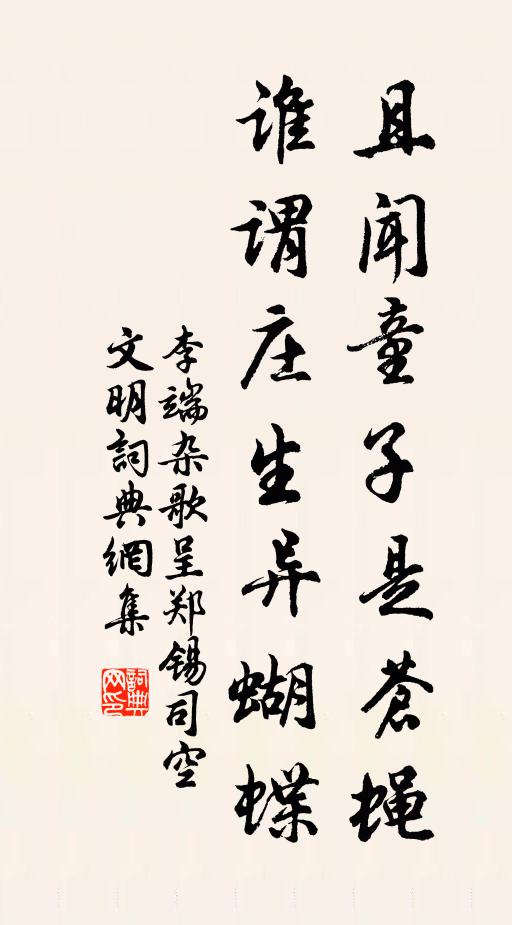 且闻童子是苍蝇
谁谓庄生异蝴蝶
李端杂歌呈郑锡司空
文明詞典網集
詞典网印